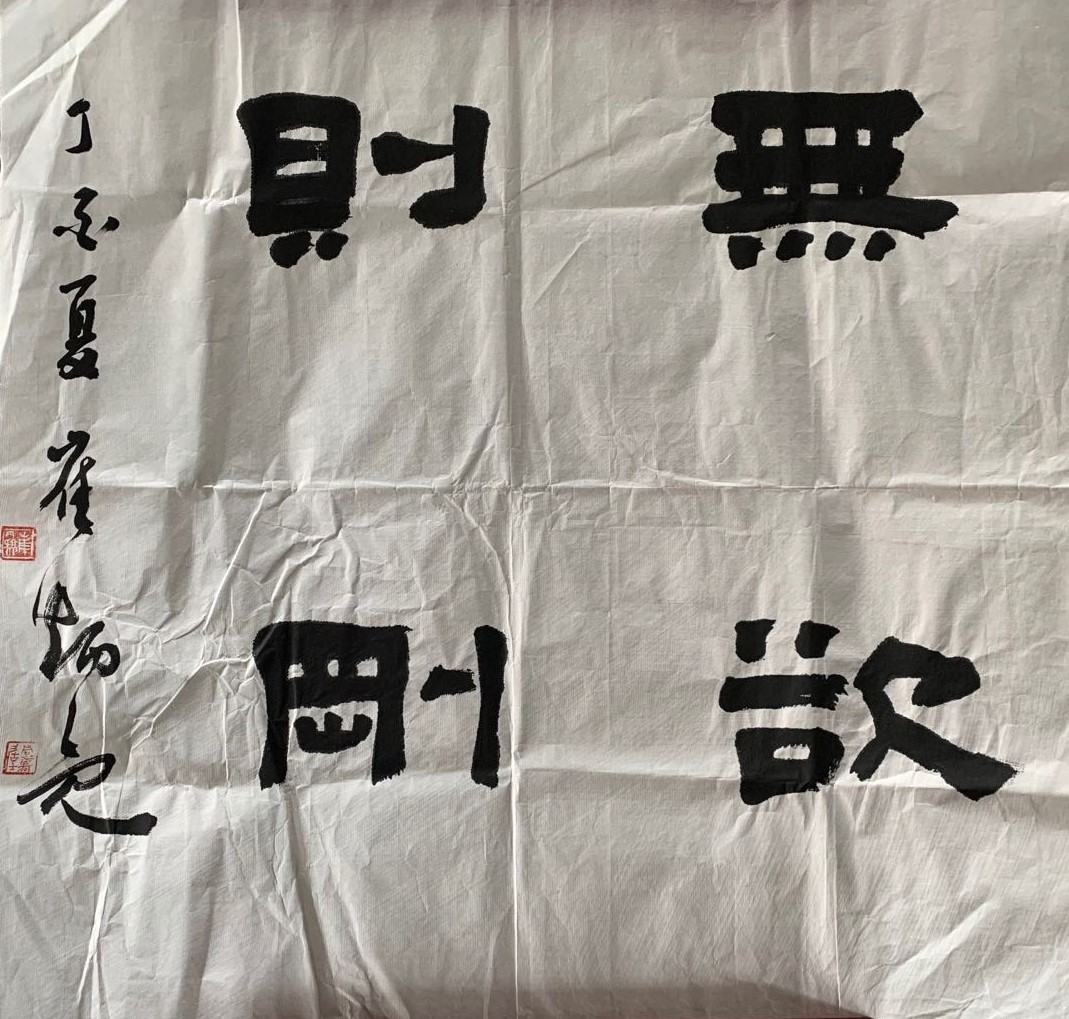 無欲
則剛
丁亥夏崔